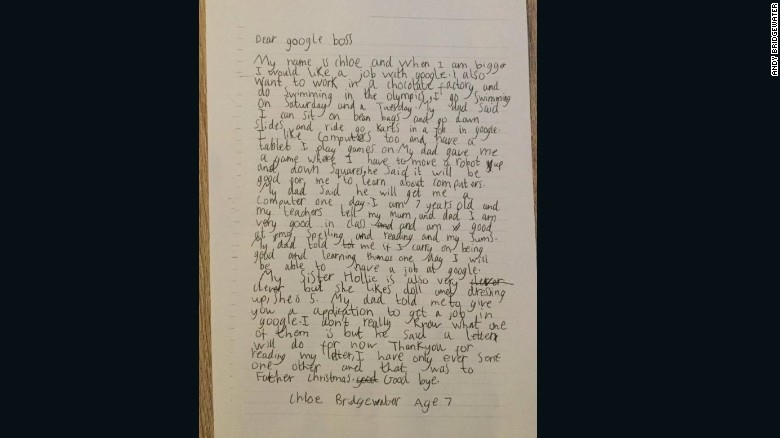 Dear google boss
My name is chloe and when I am bigger
I would like a job with google. I also
want to work in a chocolate factory and
do swimming in the olympics. I go swimming
on Saturday and a Tuesday. My dad said
I can sit on bean bags and go down
slides and ride go karts in a job in google.
I like computers too and have a
tablet I play games on. My dad gave me
a game where I have to move a robot up
and down squares, he said it will be
good for me to learn about computers.
My dad said he will get me a
computer one day. I am 7 years old and
my teachers tell my mum and dad I am
very good in class and and am good
at my spelling and reading and my sums.
My dad told me if I carry on being
good and learning one day I will
be able to have a job at google.
My sister Hollie is also very clever
clever but she likes doll and dressing
up, she's 5. My dad told me to give
you a application to get a job in
google. I don't really know what one
of them is but he said a letter
will do for now. Thankyou for
reading my letter, I have only ever sent
one other and that was to
Father christmas. good Good bye.
Chloe Bridgewater Age 7
ANDY BRIDGEWATER